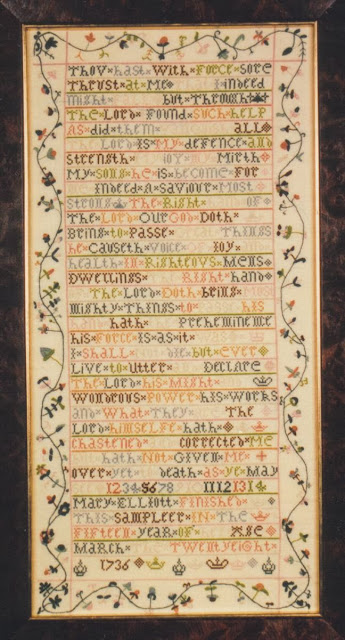 Thov hast With Force sore
Thrust at Me Indeed
might but Through
The Lord Found such help
As did them all
Lord Is My Defence and
strength Ioy Mirth
My song he is become For
Indeed A Saviour Most
strong The Right OF
The Lord Our God Doth
Bring to Passe Things
he Causeth Voice Ioy
health In Righteovs Mens
Dwellings Right hand
The Lord Doth Bring
Mighty Things to his
hand hath Preheminence
his Force Is as it
I shall Not Die but Ever
Live to Utter Declare
The Lord his Might
Wondrous Power his Works
and What They The
Lord himselfe hath
chastened corrected Me
hath Not Given Me
over yet death as ye May
12345678 11 12 13 14
Mary Elliott Finished
This Sampleer In The
Fifteen year OF Age
March Twentyeight
1736